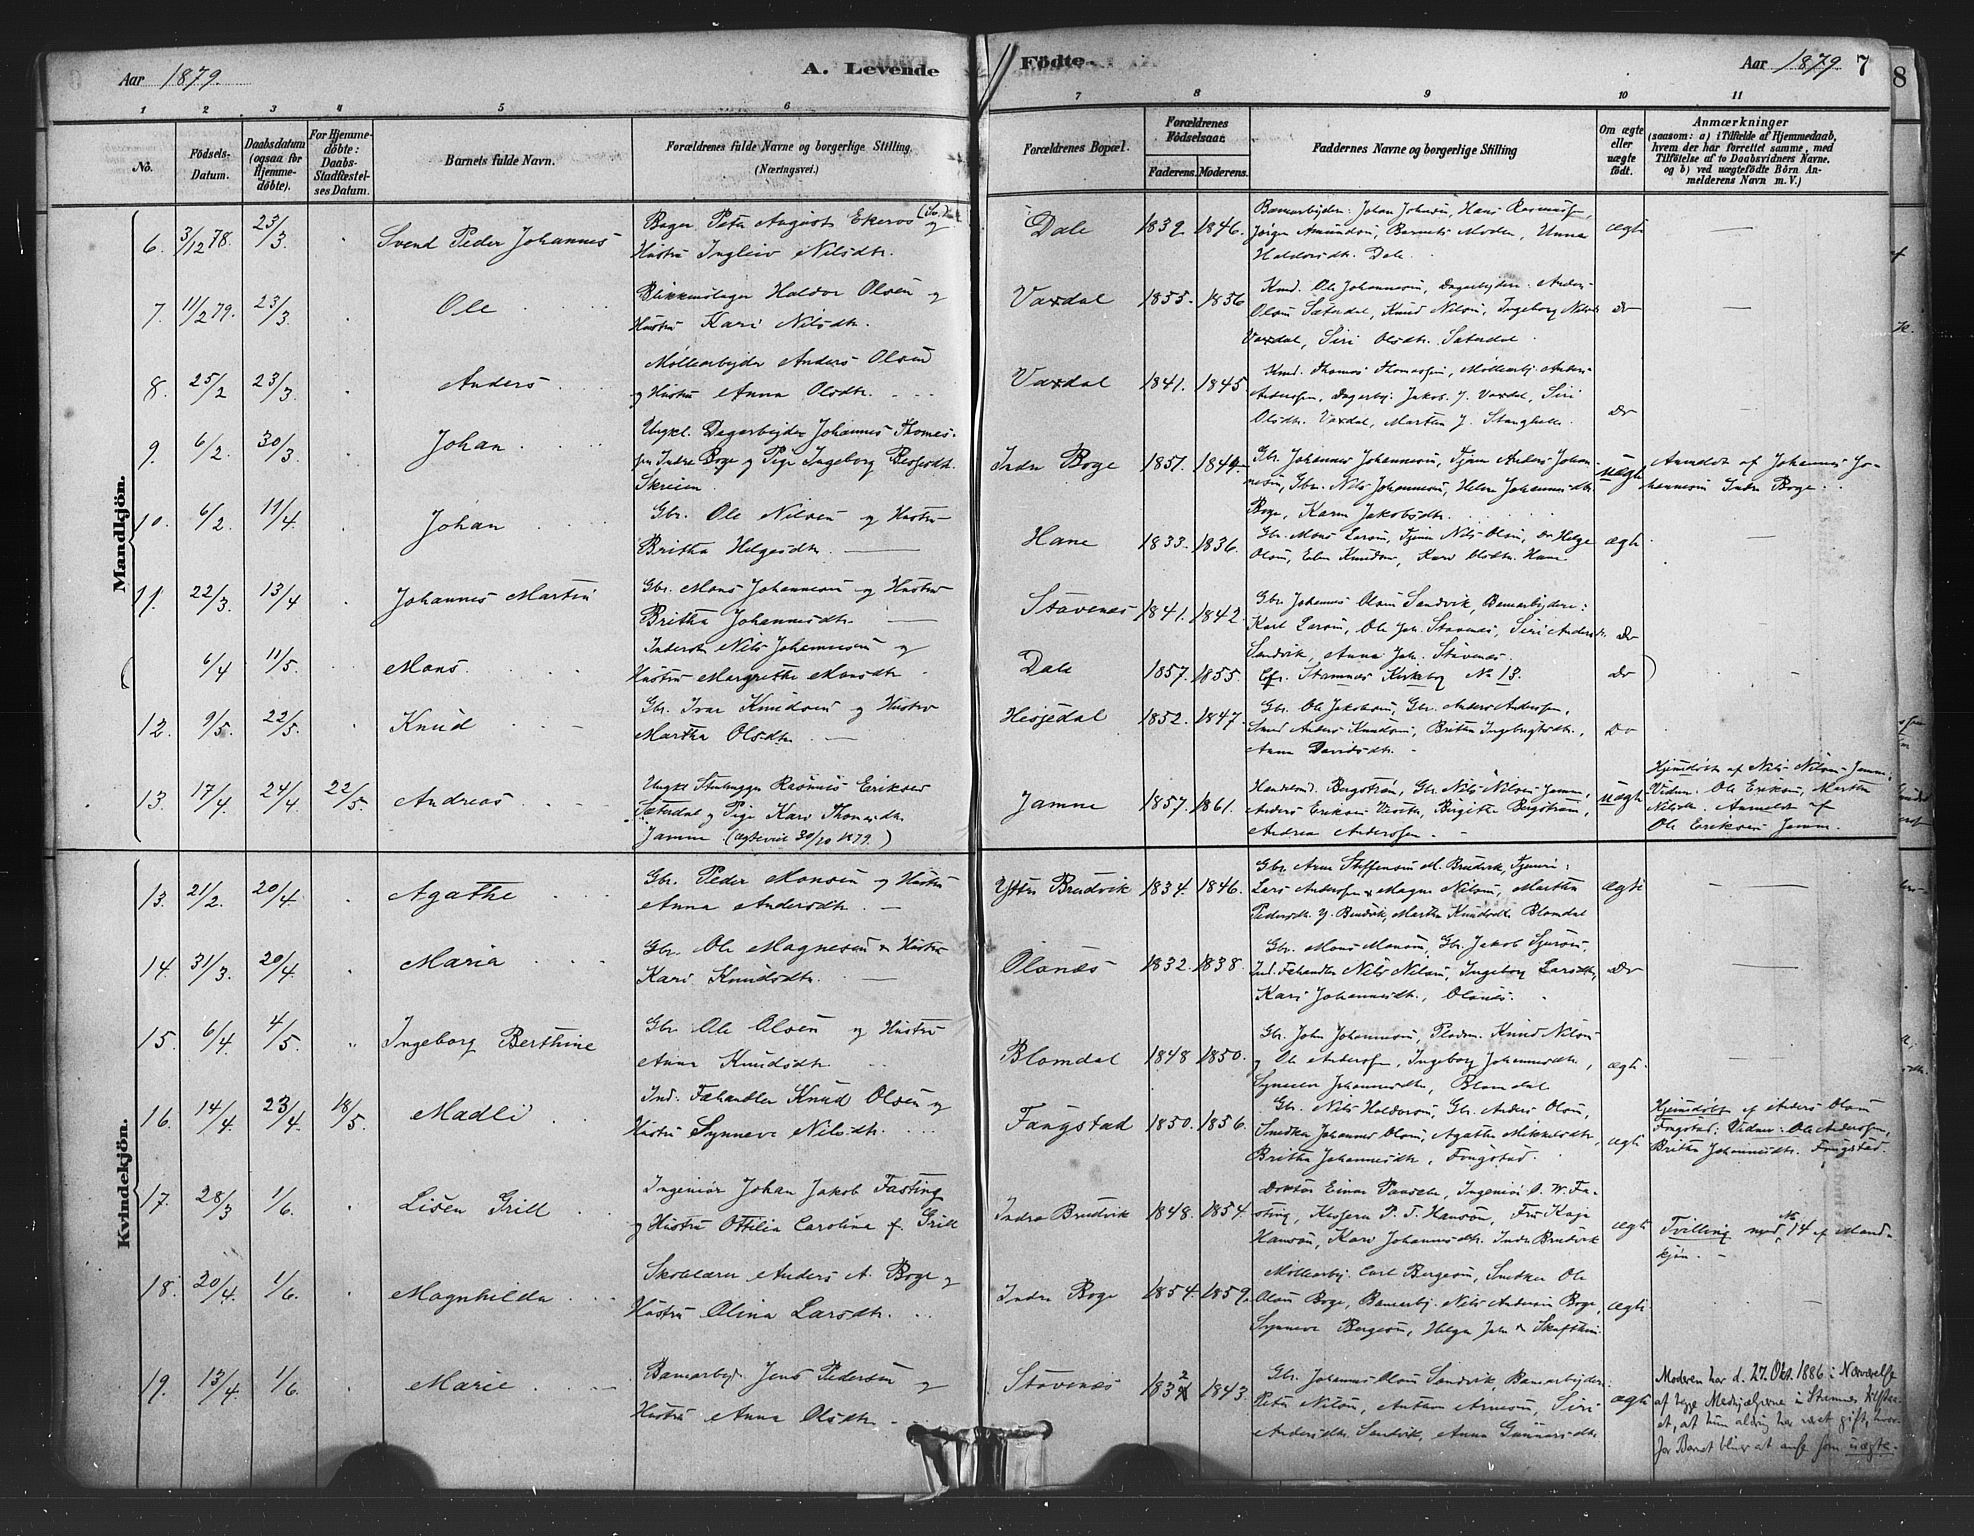 Aar 1879.
A. Levende Födte.
Aar 1879 7
8
1 2 3 4 5 6 7 8 9 10 11
No.
Födsels-Datum.
Daabsdatum (ogsaa for Hjemme-döbte).
For Hjemme-döbte: Daabs-Stadfæstelses Datum.
Barnets fulde Navn.
Forældrenes fulde Navne og borgerlige Stilling. (Næringsvei.)
Forældrenes Bopæl.
Forældrenes Födselsaar.
Faderens. Moderens.
Faddernes Navne og borgerlige Stilling
Om ægte eller uægte födt.
Anmærkninger
(saasom: a) i Tilfælde af Hjemmedaab, hvem der har forrettet samme, med Tilföielse af to Daabsvidners Navne, og b) ved uægtefödte Börn Anmelderens Navn m. V.)
Mandkjön.
6. 3/12 78. 23/3 " Svend Peder Johannes
Bager Peter August Ekeroos og
Hustru Ingleiv Nilsdtr.
Dale 1839. 1846.
Barnets Moder, Unna
Haldorsdtr. Dale
ægte —
7. 11/2 79. 23/3 " Ole
Blikkenslager Haldor Olsen og
Hustru Kari Nilsdtr.
Vaxdal 1855. 1856
Kmd. Ole Johannesen, Dagarbejdere: Anders
Olsen Sæterdal, Knud Nilsen, Ingeborg Nilsd.
Vaxdal, Siri Olsdtr. Sæterdal
Do —
8. 25/2 23/3 " Anders
Möllearbejder Anders Olsen
og Hustru Anna Olsdtr.
Vaxdal 1841. 1845.
Kmd. Thomas Thomassen, Möllearbj. Anders
Andersen, Dagarbj. Jakob J. Vaxdal, Siri
Olsdtr. Vaxdal, Martin J. Stanghelle
Do —
9. 6/2 30/3 " Johan
Ungkl. Dagarbejder Johannes Thomes-
sen Indre Boge og Pige Ingeborg
Skreien
Indre Boge 1851. 1849
Gbr. Johannes Johannesen, Tjener Anders Johan-
nesen, Gbr. Nils Johannesen, Helene Johannesdtr.
Boge, Karen Jakobsdtr.
uægte
Anmeldt af Johannes Jo-
hannesen Indre Boge.
10. 6/2 11/4 " Johan
Gbr. Ole Nilsen og Hustru
Britha Helgesdtr. —
Hane 1833. 1836.
Gbr. Mons Larsen, Tjener Nils Olsen, Do Helge
Olsen, Kari Olsdtr. Hane
ægte —
11. 22/3 13/4 " Johannes Martin
Gbr. Mons Johannesen og Hustru
Britha Johannesdtr. —
Stavenæs 1841. 1842.
Gbr. Johannes Olsen Sandvik, Bamarbejdere:
Karl Larsen, Ole Joh. Stavenæs, Siri Andersdr.
Sandvik, Anna Joh. Stavenæs.
Do
( 6/4 11/5 Mons
Inderst Nils Johannesen og
Hustru Margrethe Monsdtr.
Dale 1857. 1855.
Cfr. Stamnæs Kirkebog No 13.
Do ) —
12. 9/5 22/5 " Knud
Gbr. Ivar Knudsen og Hustru
Martha Olsdtr. —
Hesjedal 1852. 1847.
Gbr. Ole Jakobsen, Gbr. Anders Andersen,
Smed Anders Knudsen, Britha Ingebrigtsdtr.,
Anna Davidsdtr.
Do —
13. 17/4 24/4 22/5 Andreas
Ungkl. Stenhugger Rasmus Eriksen
Sæterdal og Pige Kari Thomasdtr.
Jamne (ægteviet 30/10 1879.)
Jamne 1857. 1861.
Handelsmd. Bergström, Gbr. Nils Nilsen Jamne,
Anders Eriksen, Birgithe Bergström,
Andrea Andersen.
uægte
Hjemdöbt af Nils Nilsen Jamne,
Vidner: Ole Eriksen, Martha
Nilsdtr. Anmeldt af
Ole Eriksen Jamne.
Kvindekjön.
13. 21/2. 20/4 " Agathe
Gbr. Peder Monsen og Hustru
Anna Andersdtr. —
Yttre Brudvik 1834. 1846.
Gbr. Arne Steffensen M. Brudvik, Tjenere:
Lars Andersen & Magne Nilsen, Martha
Pedersdtr. Y. Brudvik, Martha Knudsdtr. Blomdal
ægte —
14. 31/3 20/4 " Maria
Gbr. Ole Magnesen & Hustru
Kari Knudsdtr. —
Olsnæs 1832. 1838.
Gbr. Mons Monsen, Gbr. Jakob Sjursen,
Ind. Fæhandler Nils Nilsen, Ingeborg Larsdtr,
Kari Johannesdtr., Olsnæs.
Do —
15. 6/4 4/5 " Ingeborg Berthine
Gbr. Ole Olsen og Hustru
Anna Knudsdtr. —
Blomdal 1848 1850.
Gbr. John Johannesen, Knud Nilsen
og Ole Andersen, Ingeborg Johannesdtr.,
Synneva Johannesdtr., Blomdal
ægte —
16. 14/4 23/4 18/5 Madli
Ind. Fæhandler Knud Olsen og
Hustru Synneve Nilsdtr.
Fangstad 1850. 1856.
Gbr. Nils Haldorsen, Gbr. Anders Olsen,
Snedker Johannes Olsen, Agatha Mikkelsdtr.,
Britha Johannesdtr., Fangstad.
ægte
Hjemdöbt af Anders Olsen
Fangstad. Vidner: Ole Andersen,
Britha Johannesdtr. Fangstad.
17. 28/3 1/6. " Lisen Grill
Ingeniör Johan Jakob Fasting
og Hustru Ottilia Carolina f. Grill
Indre Brudvik 1848. 1854.
Doktor Einar, Ingeniör O. W. Fa-
sting, P. T. Hansen, Fru Kaja
Hansen, Kari Johannesdtr. Indre Brudvik
ægte
Tvilling med No 14 af Mand-
kjön. —
18. 20/4. 1/6. " Magnhilda
Skolelærer Anders A. Boge og
Hustru Olina Larsdtr.
Indre Boge 1854. 1859.
Möllearbj. Carl Bergesen, Snedker Ole
Olsen Boge, Bamarbj. Nils Andersen Boge,
Synneve Bergesen, Helga Joh.
ægte —
19. 13/4 1/6 " Marie
Bamarbejd. Jens Pedersen og
Hustru Anna Olsdtr. —
Stavenæs 1832 1843.
Gbr. Johannes Olsen Sandvik, Bamarbejder:
Peter Nilsen, Anthon Arnesen, Siri
Andersdtr. Sandvik, Anna Gunnarsdtr.
ægte
Moderen har d. 27. Okt. 1886 i Nærværelse
af begge Medhjælperne i Stamnes tilstaa-
et, at hun aldrig har været gift, hvor-
for Barnet bliver at anse som uægte.